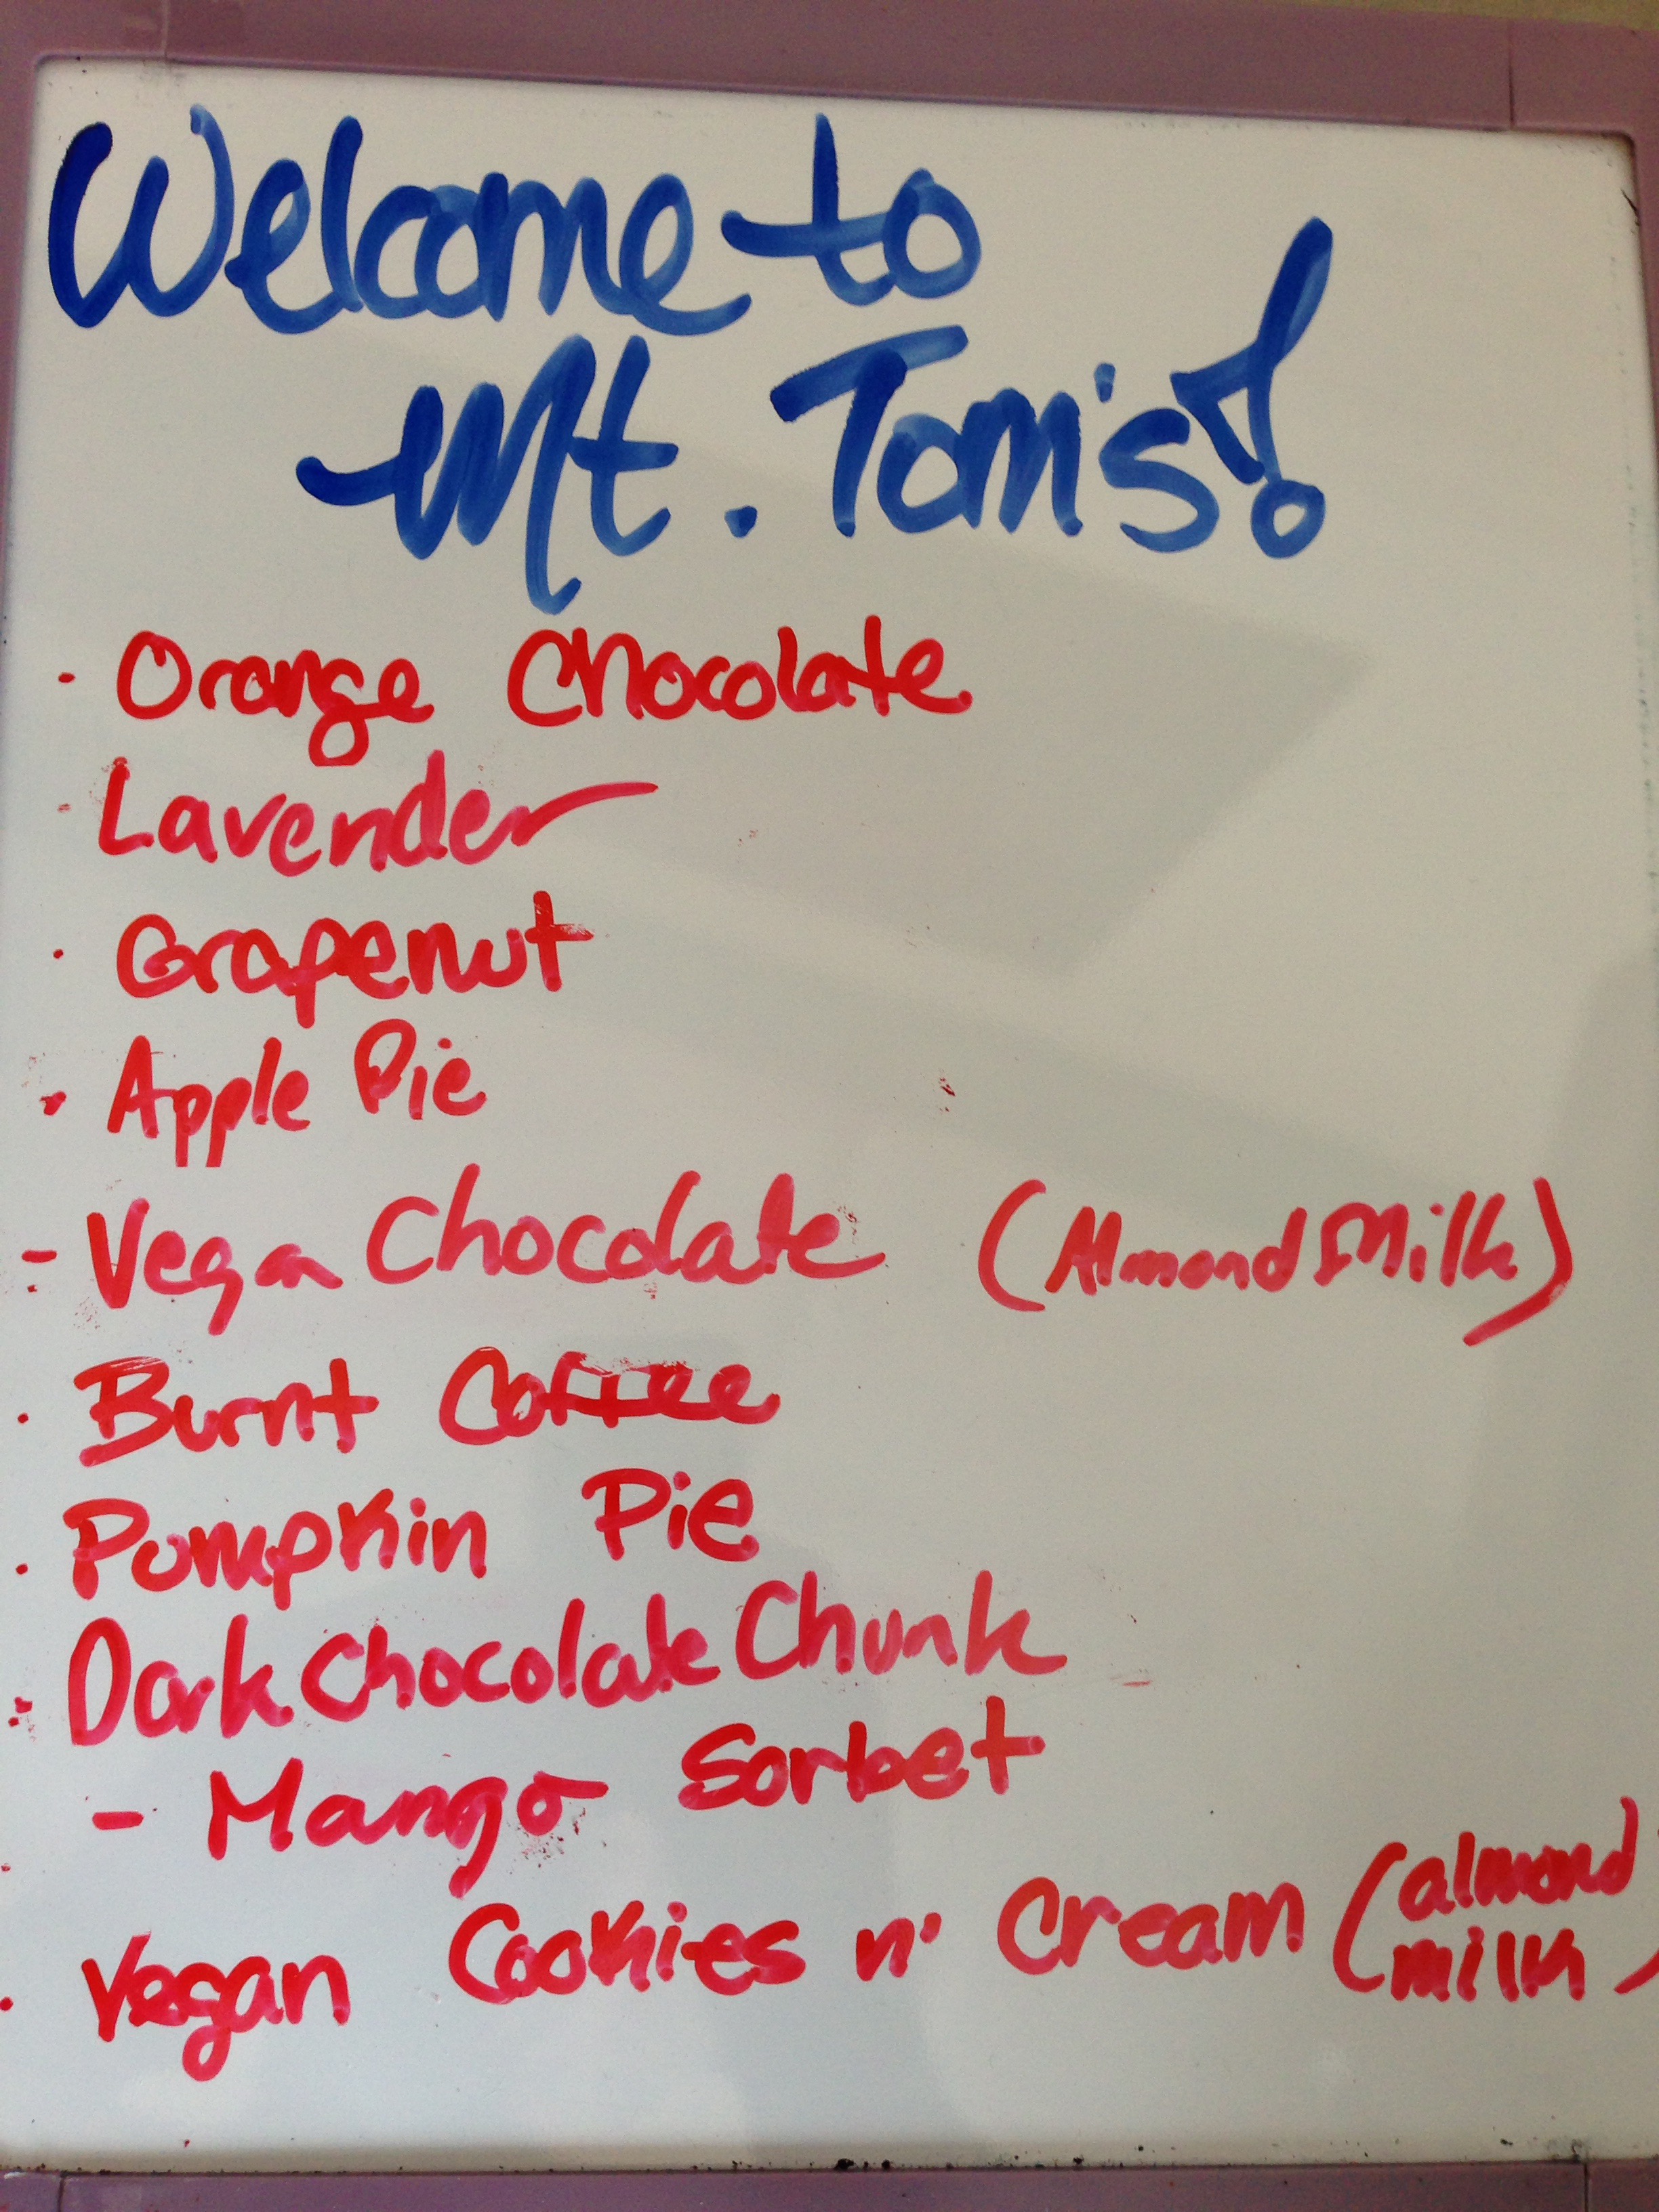 Welcome to
Mt. Tom's!
· Orange Chocolate
- Lavender
· Grapenut
· Apple Pie
- Vegan Chocolate (Almond Milk)
· Burnt Coffee
· Pumpkin Pie
· Dark Chocolate Chunk
- Mango Sorbet
· Vegan Cookies n' Cream (almond
milk)